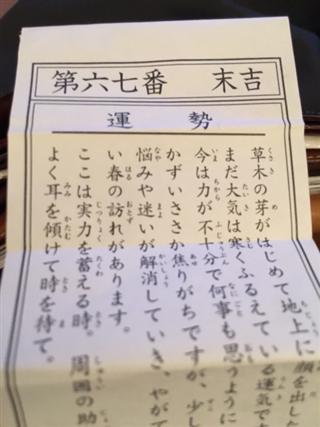 第六七番 末吉
運勢
草木の芽がはじめて地上に顔を出した
まだ大気は寒くふるえている運気で
今は力が不十分で何事も思うように
かずいささか焦りがちですが、少し
悩みや迷いが解消していき、やがて
い春の訪れがあります。
ここは実力を蓄える時。 周囲の助
よく耳を傾けて時を待て。